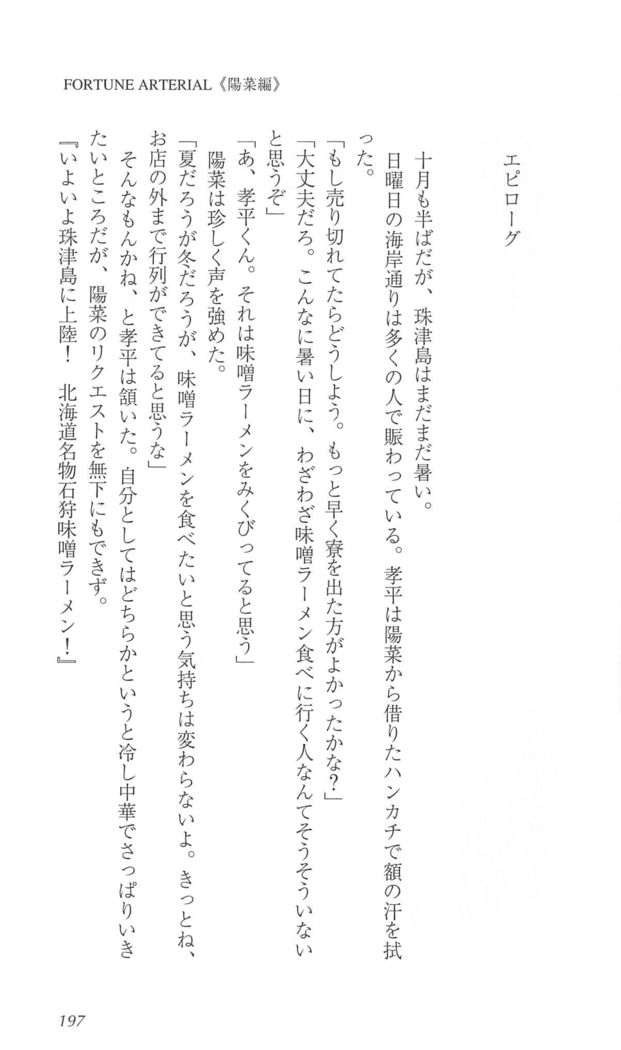 FORTUNE ARTERIAL《陽菜編》
エピローグ
十月も半ばだが、珠津島はまだまだ暑い。
日曜日の海岸通りは多くの人で賑わっている。孝平は陽菜から借りたハンカチで額の汗を拭
った。
「もし売り切れてたらどうしよう。もっと早く寮を出た方がよかったかな?」
「大丈夫だろ。こんなに暑い日に、わざわざ味噌ラーメン食べに行く人なんてそうそういない
と思うぞ」
「あ、孝平くん。それは味噌ラーメンをみくびってると思う」
陽菜は珍しく声を強めた。
「夏だろうが冬だろうが、味噌ラーメンを食べたいと思う気持ちは変わらないよ。きっとね、
お店の外まで行列ができてると思うな」
そんなもんかね、と孝平は頷いた。自分としてはどちらかというと冷し中華でさっぱりいき
たいところだが、陽菜のリクエストを無下にもできず。
『いよいよ珠津島に上陸! 北海道名物石狩味噌ラーメン!』
197